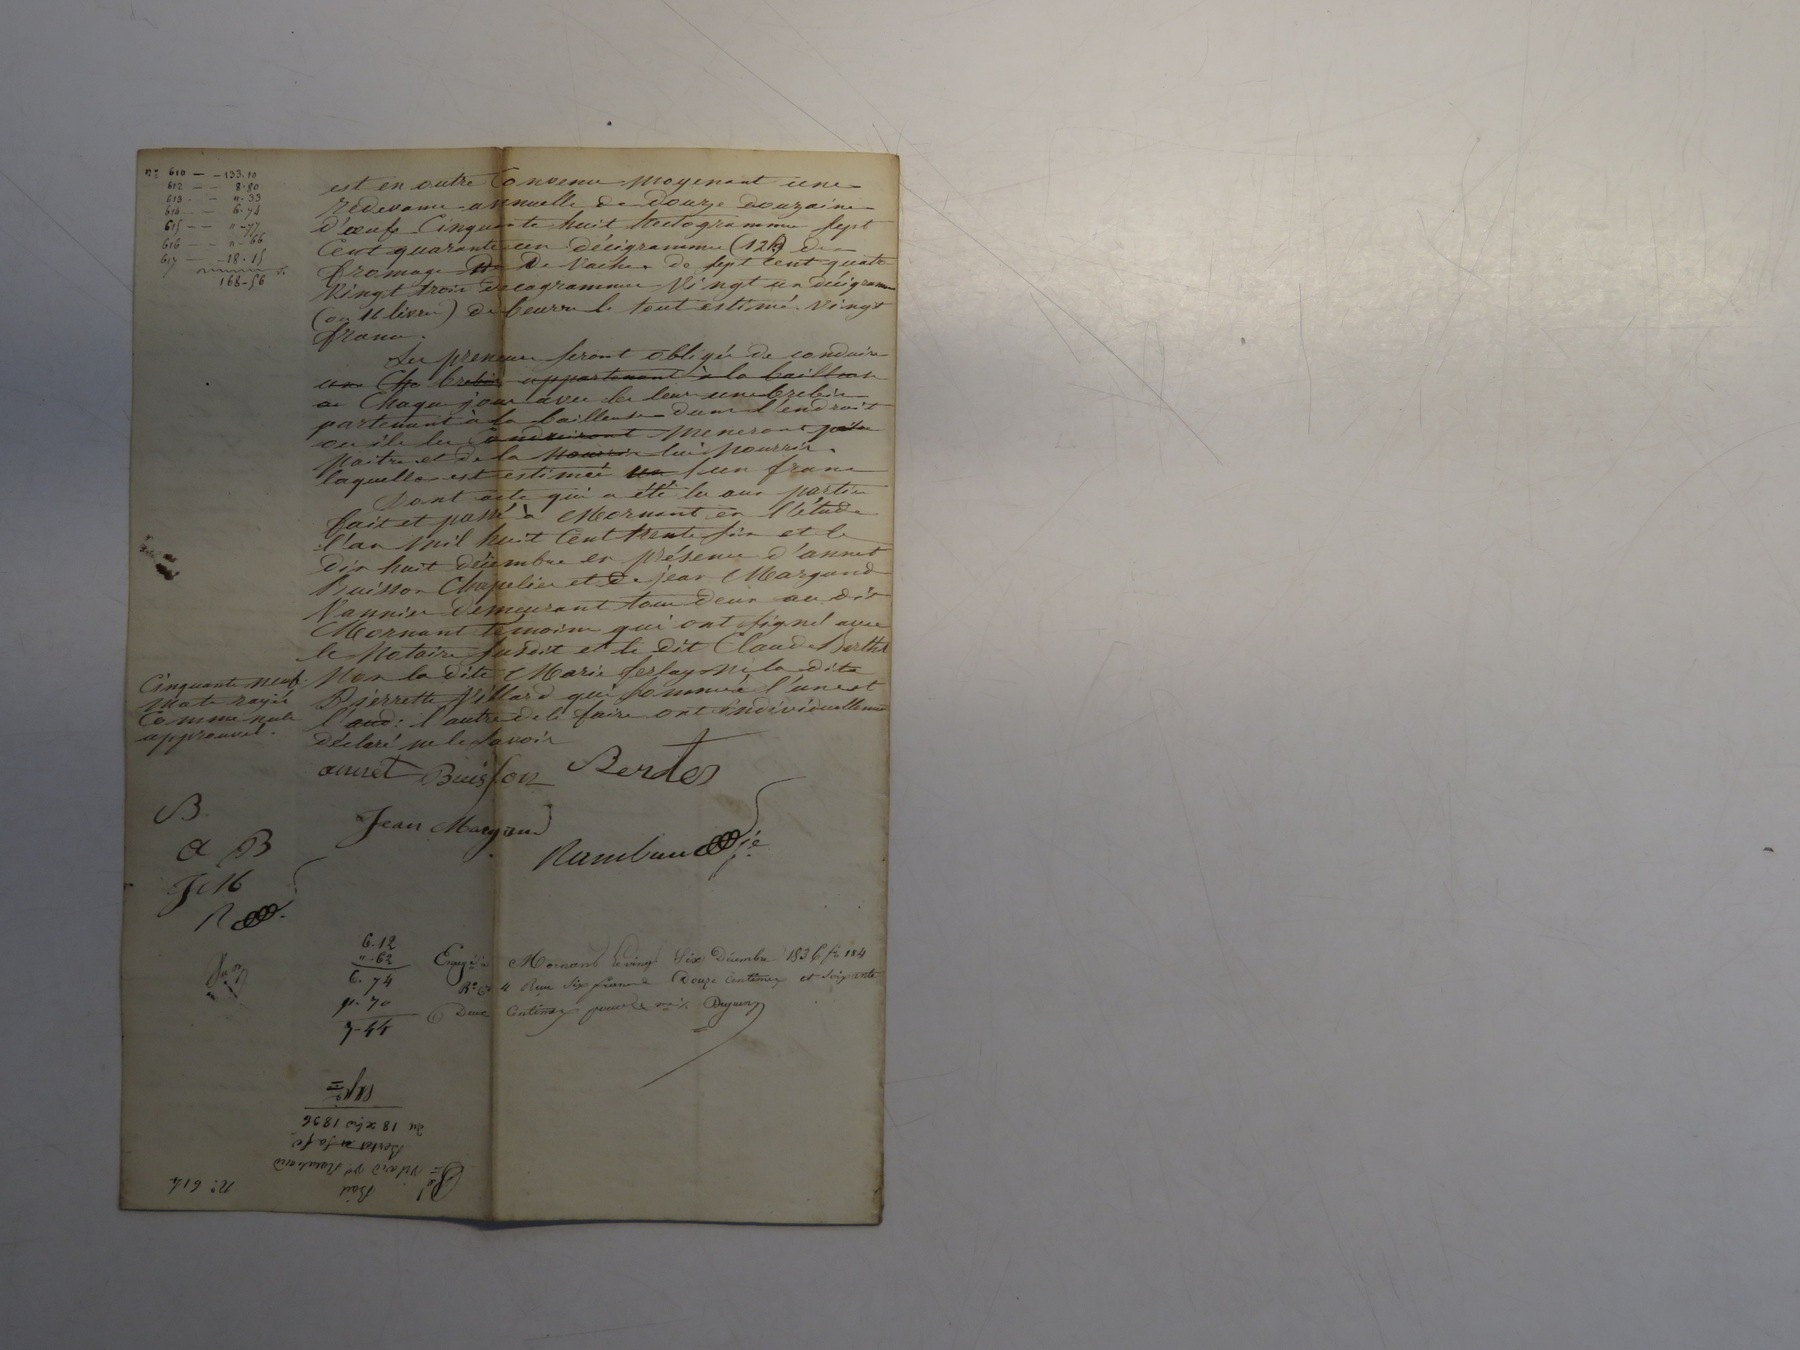 n° 610 — — 133.10
612 — — 8.80
613 - - "-33
614 - - 6.74
615 — — "-77
616 — — "-66
617 — — 18.15
168-56
est en outre Convenu moyenant une
redevance annuelle de Douze Douzaine
d'œufs Cinquante huit hectogrammes sept
Cent quarante un décigramme (12) de
fromage De Vache de sept Cent quatre
Vingt trois decagrammes Vingt un décigramme
(ou 16 livres) de beurre le tout estimé Vingt
francs.
Les preneurs seront obligés de conduire
appartenant à la bailleuse
Chaque jour avec les leurs une brebis
partenant à la bailleuse dans l'endroit
ou ils les Conduiront meneront
paitre et de la nourrir lui nourrir.
laquelle est estimée un franc
Dont acte qui a été lu aux parties
fait et passé à Mornant en l'étude
l'an Mil huit Cent trente six et le
dix huit décembre en présence d'annet
Buisson Chapelier et de jean Margand
Vannier demeurant tous deux au dit
Mornant temoins qui ont signé avec
le Notaire susdit et le dit Claude Berthet
Non la dite Marie ferlay ni la dite
Pierrette Villard qui sommées l'une et
l'aud: l'autre de le faire ont individuellement
déclaré ne le savoir
Cinquante neuf
mots rayés
Comme nuls
approuvés.
annet Buisson Berdes
Jean Margand
Rambaud
B
A B
JM
R
6.12
"-62
6.74
70
7-44
Enregistré Mornant le vingt Six Décembre 1836 f° 184
R° C 4 Reçu Six francs Douze Centimes et soixante
Deux Centimes pour le
N° 614
Bail
Villard Ve Rambaud
Bertet
du 18 xbre 1836